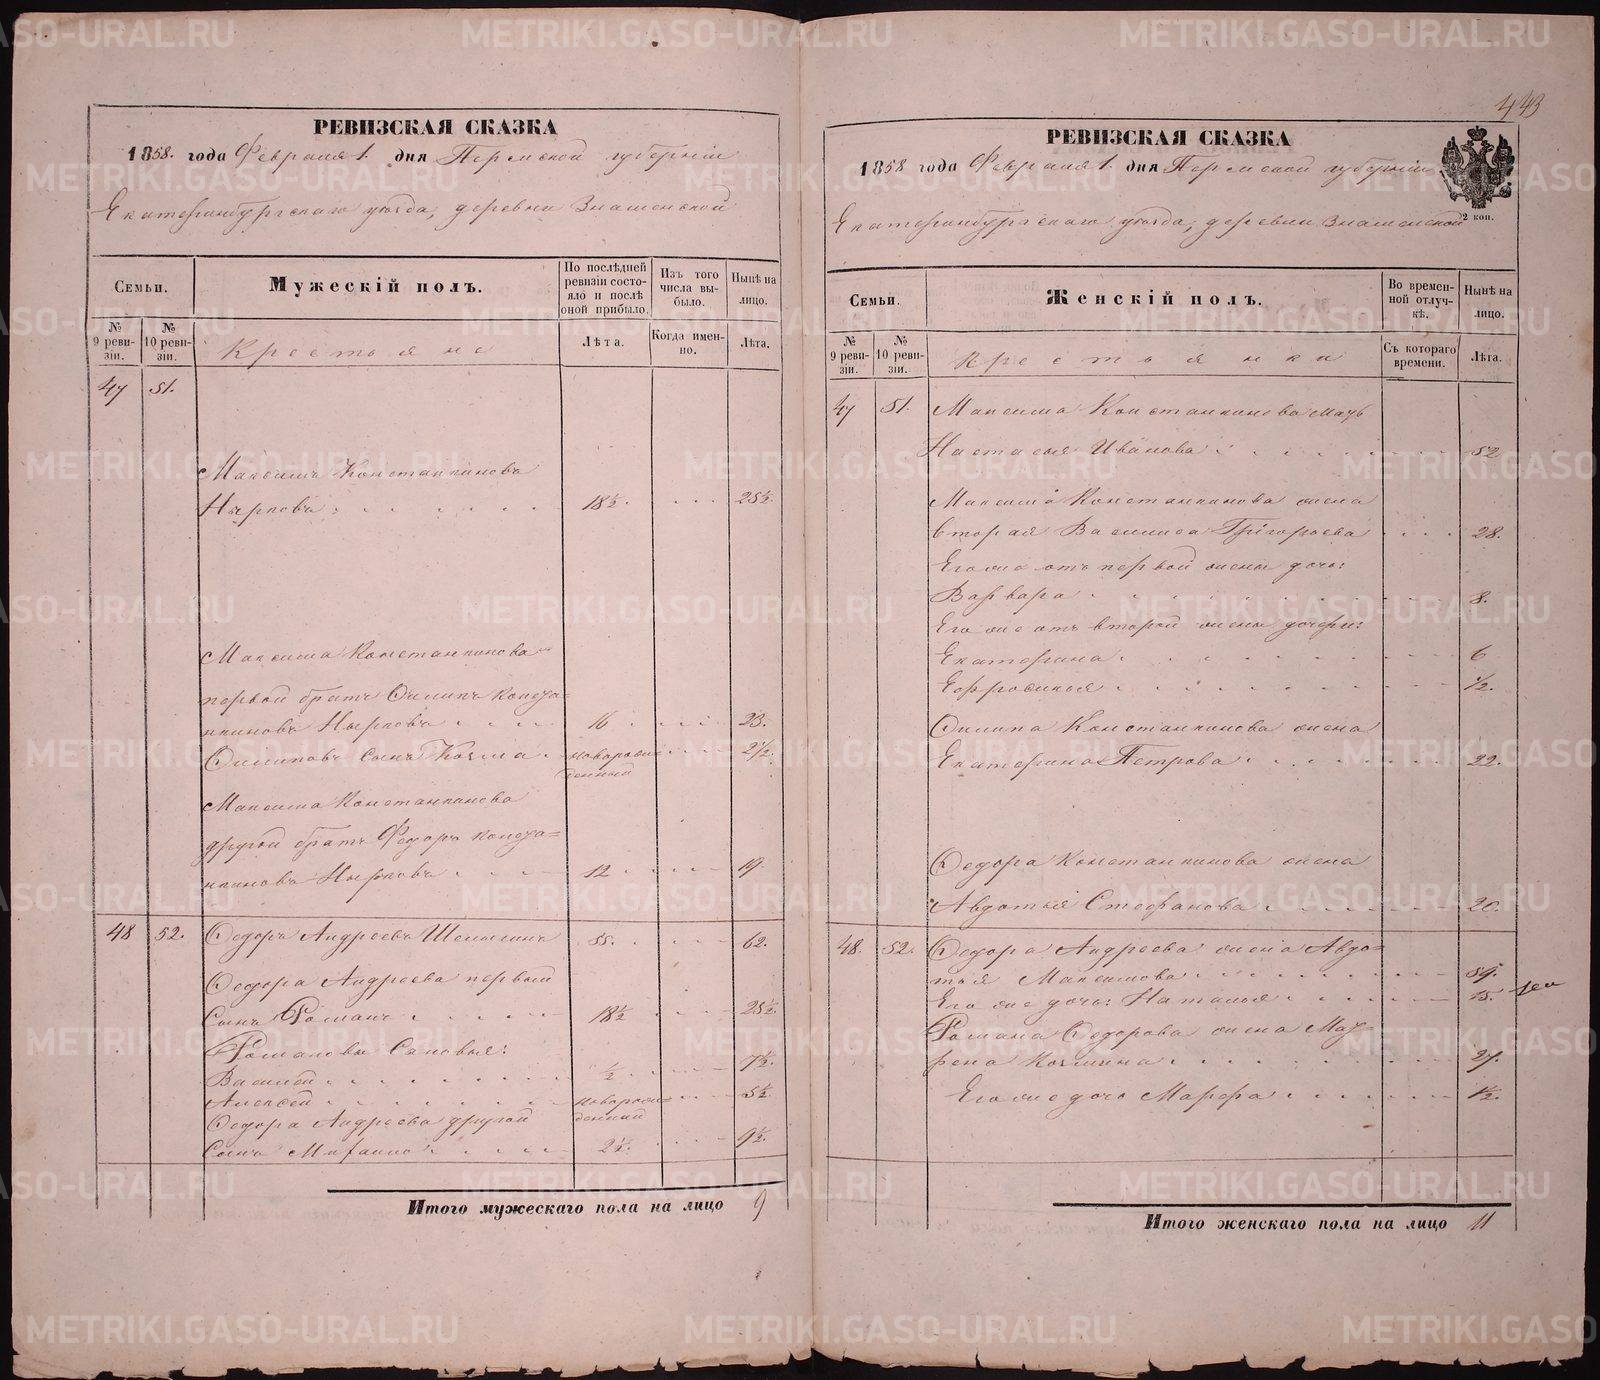 443
РЕВИЗСКАЯ СКАЗКА
1858. года Февраля 1. дня Пермской губернiи
Екатеринбургскаго уѣзда, деревни Знаменской
Семьи.
Мужескiй полъ.
По послѣдней ревизiи состояло и послѣ оной прибыло.
Изъ того числа выбыло.
Нынѣ на лицо.
№ 9 ревизiи.
№ 10 ревизiи.
Крестьяне
Лѣта.
Когда именно.
Лѣта.
47 51.
Максимъ Константиновъ
18½. 25½.
Максима Константинова
первой братъ Филипъ Конста=
нтиновъ 16 23.
Филиповъ сынъ Козма новорож=денный 2½.
Максима Константинова
другой братъ Федоръ Конста=
нтиновъ 12 19.
48 52. Федоръ Андреевъ 55. 62.
Федора Андреева первый
Сынъ Романъ 18½ 25½.
Романовы Сыновья:
Василей ½ 7½.
Алексей новорож=денный 5½.
Федора Андреева другой
Сынъ Михаило 2½. 9½.
Итого мужескаго пола на лицо 9
РЕВИЗСКАЯ СКАЗКА
1858 года Февраля 1. дня Пермской губернiи
Екатеринбургскаго уѣзда, деревни Знаменской
2 коп.
Семьи.
Женскiй полъ.
Во временной отлучкѣ.
Нынѣ на лицо.
№ 9 ревизiи.
№ 10 ревизiи.
Крестьянки
Съ котораго времени.
Лѣта.
47 51. Максима Константинова мать
Настасья Иванова 52
Максима Константинова жена
вторая Василиса Григорьева 28.
Его же отъ первой жены дочь:
Варвара 8.
Его же отъ второй жены дочери:
Екатерина 6
Ефросинья ½.
Филипа Константинова жена
Екатерина Петрова 22.
Федора Константинова жена
Авдотья Стефанова 20.
48. 52. Федора Андреева жена Авдо=
тья Максимова 59.
Его же дочь: Наталья 15.
Романа Федорова жена Мат=
рена Козмина 27.
Его же дочь Марфа 1½.
Итого женскаго пола на лицо 11
METRIKI.GASO-URAL.RU